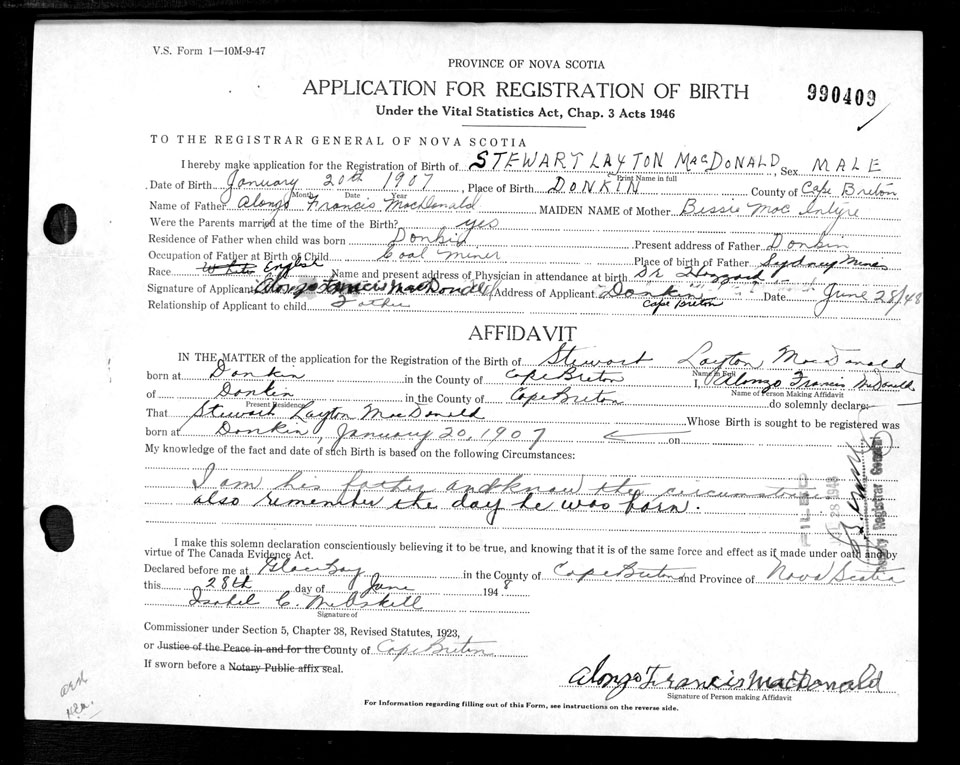 V.S. Form 1—10M-9-47
PROVINCE OF NOVA SCOTIA
APPLICATION FOR REGISTRATION OF BIRTH
990409
Under the Vital Statistics Act, Chap. 3 Acts 1946
TO THE REGISTRAR GENERAL OF NOVA SCOTIA
I hereby make application for the Registration of Birth of STEWART LAYTON MACDONALD, Sex MALE
Print Name in full
Date of Birth January 20th 1907, Place of Birth DONKIN County of Cape Breton
Month Date Year
Name of Father Alonzo Francis MacDonald MAIDEN NAME of Mother Bessie Mac Intyre
Were the Parents married at the time of the Birth? yes
Residence of Father when child was born Donkin Present address of Father Donkin
Occupation of Father at Birth of Child Coal Miner Place of birth of Father Sydney Mines
Race White English Name and present address of Physician in attendance at birth Dr
Signature of Applicant Alonzo Francis MacDonald Address of Applicant "Donkin" Date June 28/48
Relationship of Applicant to child Father Cape Breton
AFFIDAVIT
IN THE MATTER of the application for the Registration of the Birth of Stewart Layton MacDonald
Name in Full
born at Donkin in the County of Cape Breton I, Alonzo Francis McDonald
Name of Person Making Affidavit
of Donkin in the County of Cape Breton do solemnly declare:
Present Residence
That Stewart Layton MacDonald Whose Birth is sought to be registered was
born at Donkin, January 20, 1907 on
My knowledge of the fact and date of such Birth is based on the following Circumstances:
I am his father and know the circumstances
also remember the day he was born.
FILED
28 1948
Deputy Registrar General
I make this solemn declaration conscientiously believing it to be true, and knowing that it is of the same force and effect as if made under oath and by
virtue of The Canada Evidence Act.
Declared before me at Glace Bay in the County of Cape Breton and Province of Nova Scotia
this 28th day of June 1948
Isabel C. McAskill
Signature of
Commissioner under Section 5, Chapter 38, Revised Statutes, 1923,
or Justice of the Peace in and for the County of Cape Breton
If sworn before a Notary Public affix seal.
Alonzo Francis MacDonald
Signature of Person making Affidavit
For Information regarding filling out of this Form, see instructions on the reverse side.